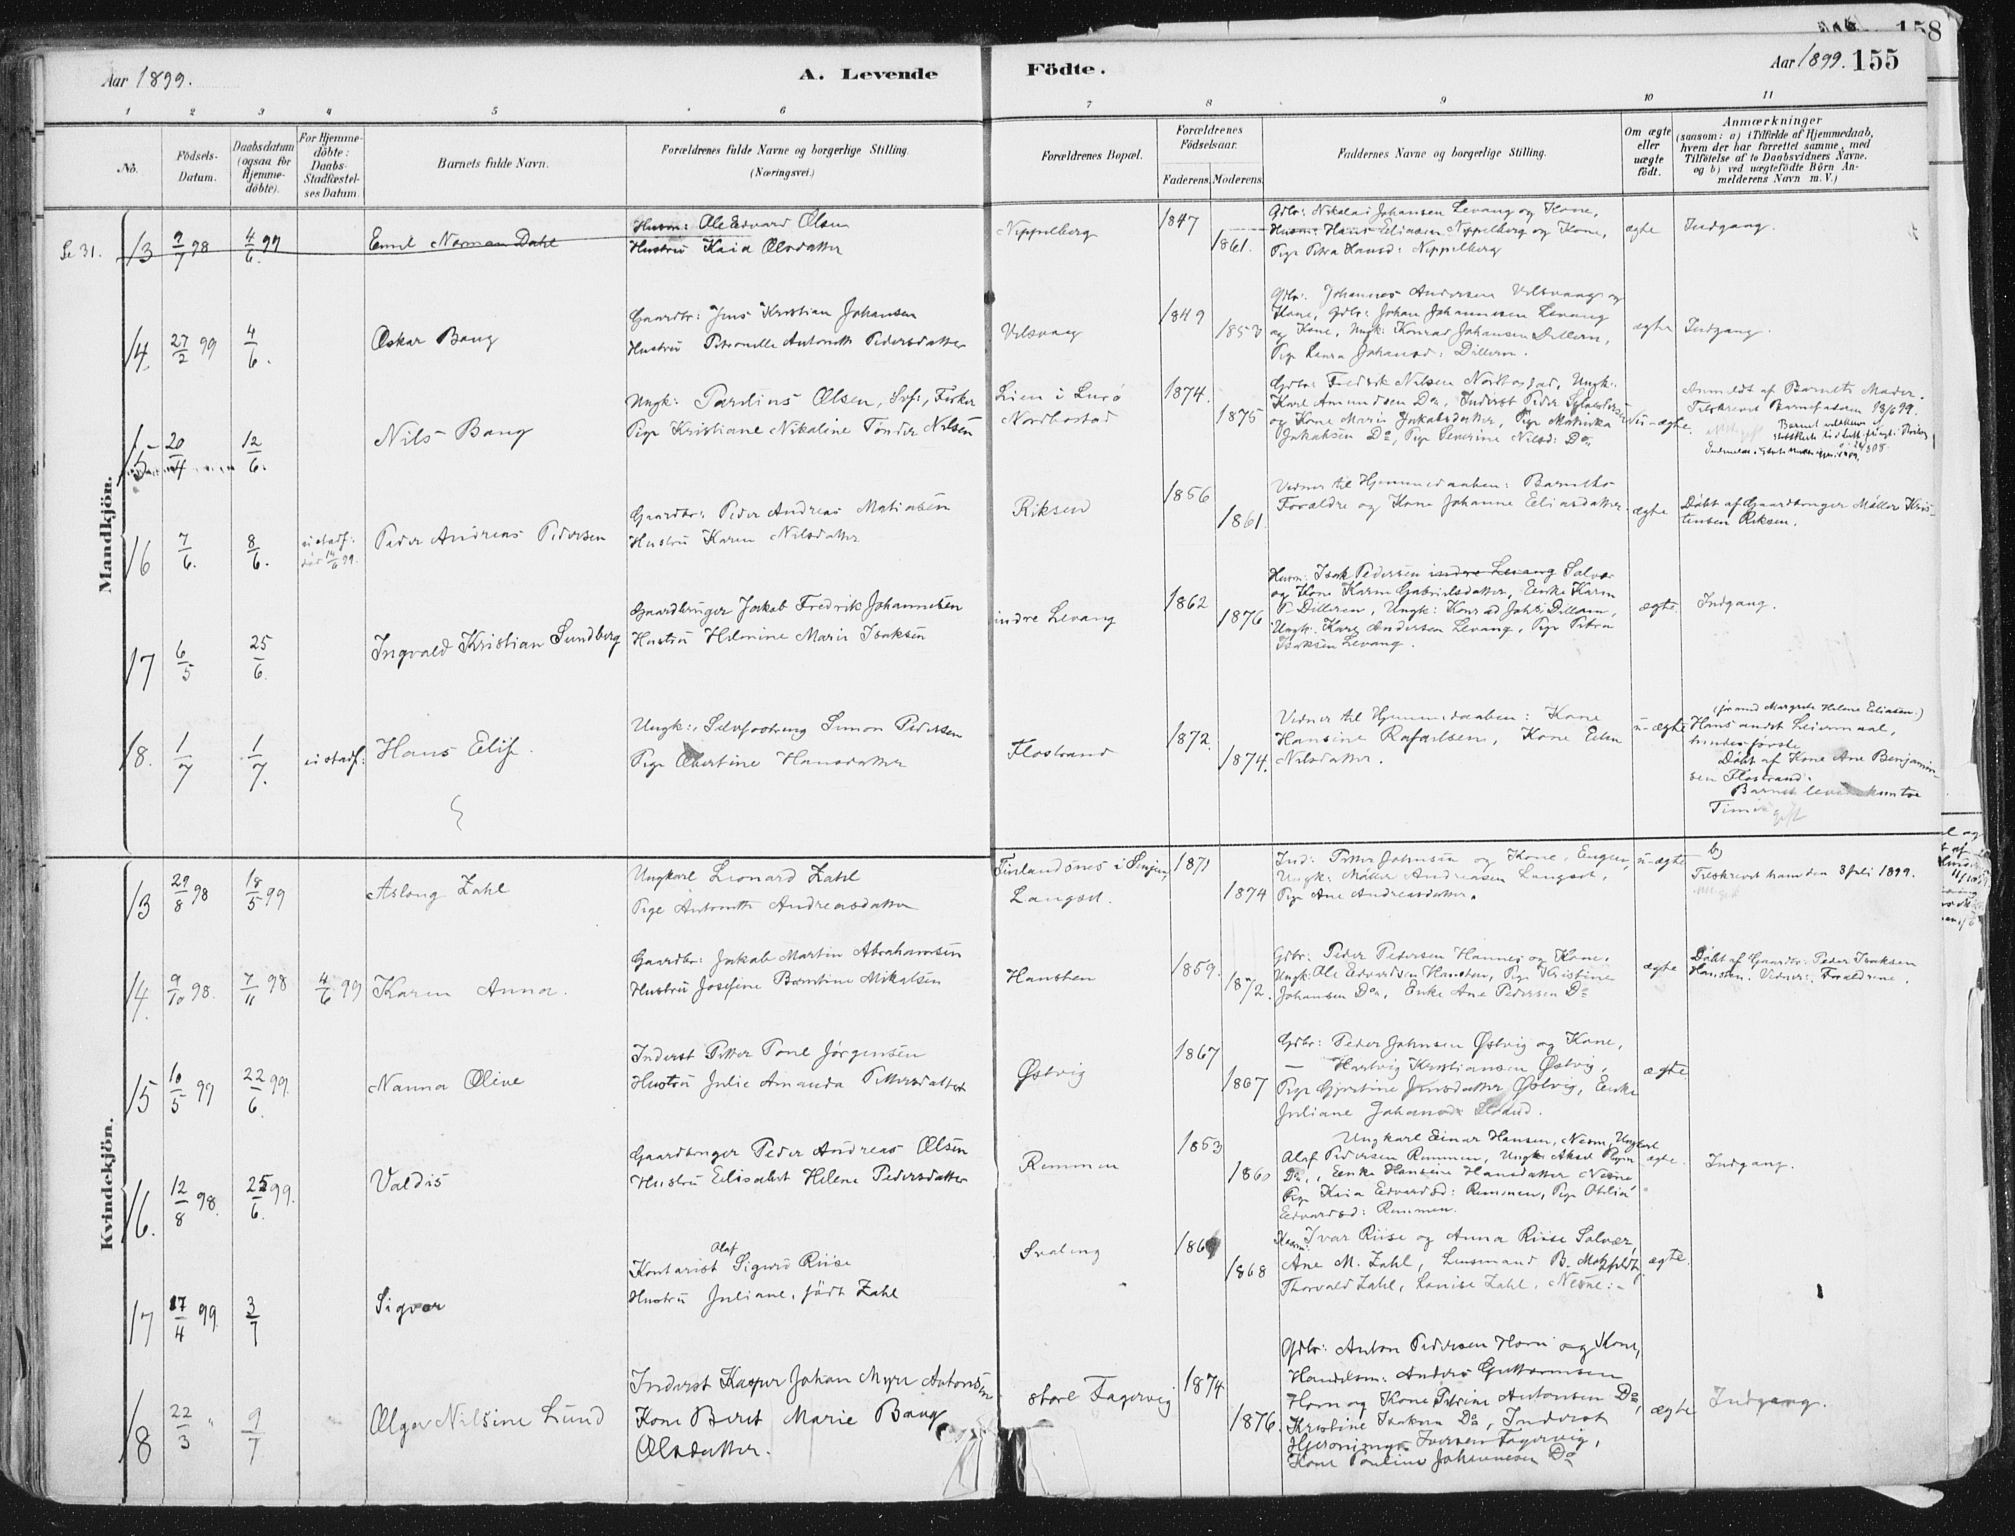 158
Aar 1899.
A. Levende
Födte.
Aar 1899. 155
1 2 3 4 5 6 7 8 9 10 11
No.
Födsels-Datum.
Daabsdatum (ogsaa för Hjemme-döbte).
For Hjemme-döbte: Daabs-Stadfæstel-ses Datum.
Barnets fulde Navn.
Forældrenes fulde Navne og borgerlige Stilling. (Næringsvei.)
Forældrenes Bopæl.
Forældrenes Födselsaar.
Faderens. Moderens.
Faddernes Navne og borgerlige Stilling.
Om ægte eller uægte födt.
Anmærkninger
(saasom: a) i Tilfælde af Hjemmedaab,
hvem der har forrettet samme, med
Tilföielse af to Daabsvidners Navne.
og b) ved uægtefödte Börn An-
melderens Navn m. V.)
Mandkjön.
Se 31. 13 9/7 98 4/6 99 Emil Norman Dahl
Husm: Ole Edvard Olsen
Hustru Kaia Olsdatter
Nippelberg 1847 1861.
Gdbr: Nikolai Johansen Levang og Kone,
Husm: Hans Eliassen Nippelberg og Kone,
Pige Petra Hansd: Nippelberg
ægte Indgang.
14. 27/2 99 4/6. Oskar Bang
Gaardbr: Jens Kristian Johansen
Hustru Petronelle Antonette Pedersdatter
Velsvaag 1849 1853
Gdbr: Johannes Andersen Velsvaag og
Kone, Gdbr: Johan Johannesen Levang
og Kone, Ungk: Konrad Johansen Dillern,
Pige Lenra Johansd: Dillern.
ægte Indgang.
15 20/4 12/6. Nils Bang
Ungk: Parelius Olsen, Self:, Fisker
Pige Kristiane Nikoline Tønder Nilsen
Lien i Lurø
Nordbostad 1874. 1875
Gdbr: Fredrik Nilsen Nordbostad, Ungk:
Karl Amundsen Do, Inderst Peder Sylvestersen
og Kone Maria Jakobsdatter, Pige
Jakobsen Do, Pige Severine Nilsd: Do.
u-ægte.
Anmeldt af Barnets Moder.
Tilskrevet Barnefaderen 13/6 99.
16 7/6. 8/6. ei stadf: död 14/6 99. Peder Andreas Pedersen
Gaardbr: Peder Andreas Matiasen
Hustru Karen Nilsdatter
Riksen 1856 1861.
Vidner til Hjemmedaaben: Barnets
Forældre og Kone Johanne Eliasdatter.
ægte Döbt af Gaardbruger Möller Kris-
tensen Riksen.
17 6/5 25/6. Ingvald Kristian Sundberg
Gaardbruger Jakob Fredrik Johannesen
Hustru Helmine Marie Isaksen
indre Levang 1862 1876
Husm: Isak Pedersen indre Levang Salvær
og Kone Karen Gabrielsdatter, Enke Karen
P. Dilleren, Ungk: Konrad Johs: Dillern,
Ungk: Karl Andersen Levang, Pige Petra
Isaksen Levang.
ægte. Indgang.
18. 1/7 1/7. ei stadf: Hans Elif.
Ungk:, Selvfostring Simon Pedersen
Pige Albertine Hansdatter
Flostrand 1872. 1874.
Vidner til Hjemmedaaben: Kone
Hansine Rafaelsen, Kone Ellen
Nilsdatter.
u-ægte
(før med Margrete Helene Eliasen.)
Hans andet Leiermaal,
hendes første.
Döbt af Kone Ane Benjamin-
sen Flostrand.
Barnet levede kun to
Timer
Kvindekjön.
13 29/8 98 18/5 99 Aslaug Zahl
Ungkarl Leonard Zahl
Pige Antonette Andreasdatter
Finlandsnes i Senjen
Langset. 1871 1874
Ind: Petter Johnsen og Kone, Engen,
Ungk: Möller Andreasen Langset,
Pige Ane Andreasdatter.
u-ægte b)
Tilskrevet ham den 3 Juli 1899.
14. 9/10 98. 7/11 98 4/6 99 Karen Anna.
Gaardbr: Jakob Martin Abrahamsen
Hustru Josefine Berntine Mikalsen
Hansten 1859. 1872.
Gdbr: Peder Pedersen Hannes og Kone,
Ungk: Ole Edvardsen Hansten, Pige Kristine
Johansen Do, Enke Ane Pedersen Do
ægte Döbt af Gaardbr: Peder Isaksen
Hansten. Vidner: Forældrene.
15 10/5 99 22/6 99. Nanna Olive
Inderst Petter Tonel Jörgensen
Hustru Julie Amanda Pettersdatter
Østvig 1867 1867
Gdbr: Peder Johnsen Østvig og Kone,
— Hartvig Kristiansen Østvig,
Pige Gjertine Jensdatter Østvig, Enke
Juliane Johansd: Strand.
ægte.
16. 12/8 98. 25/6 99. Valdis
Gaardbruger Peder Andreas Olsen
Hustru Elisabet Helene Pedersdatter
Remmen 1853 1860
Ungkarl Einar Hansen, Nesne, Ungkarl
Olaf Pedersen Remmen, Ungk: Aksel
Do, Enke Hansine Hansdatter Nesne,
Pige Kaia Edvardsd: Remmen, Pige Otilia
Edvardsd: Remmen.
ægte. Indgang.
17 17/4 99 3/7 Sigvor
Kontorist Olaf Sigurd Riise
Hustru Juliane, född Zahl
Svaleng 1868
Husm: Ivar Riise og Anna Riise Salvær,
Ane M. Zahl, Lensmand B.
Thorvald Zahl, Lovise Zahl, Nesne:-
ægte.
18 22/3 " 9/7 Olga Nilsine Lund
Inderst Kasper Johan Myre Antonsen
Kone Beret Marie Bang
Olsdatter.
store Fagervig 1874 1876.
Gdbr: Anton Pedersen Horn og Kone,
Handelsm: Anders Guttormsen
Horn og Kone Petrine Antonsen Do,
Kristine Isaksen Do, Inderst
Hjeronimus Iversen Fagervig,
Kone Pauline Johannesen Do
ægte Indgang.